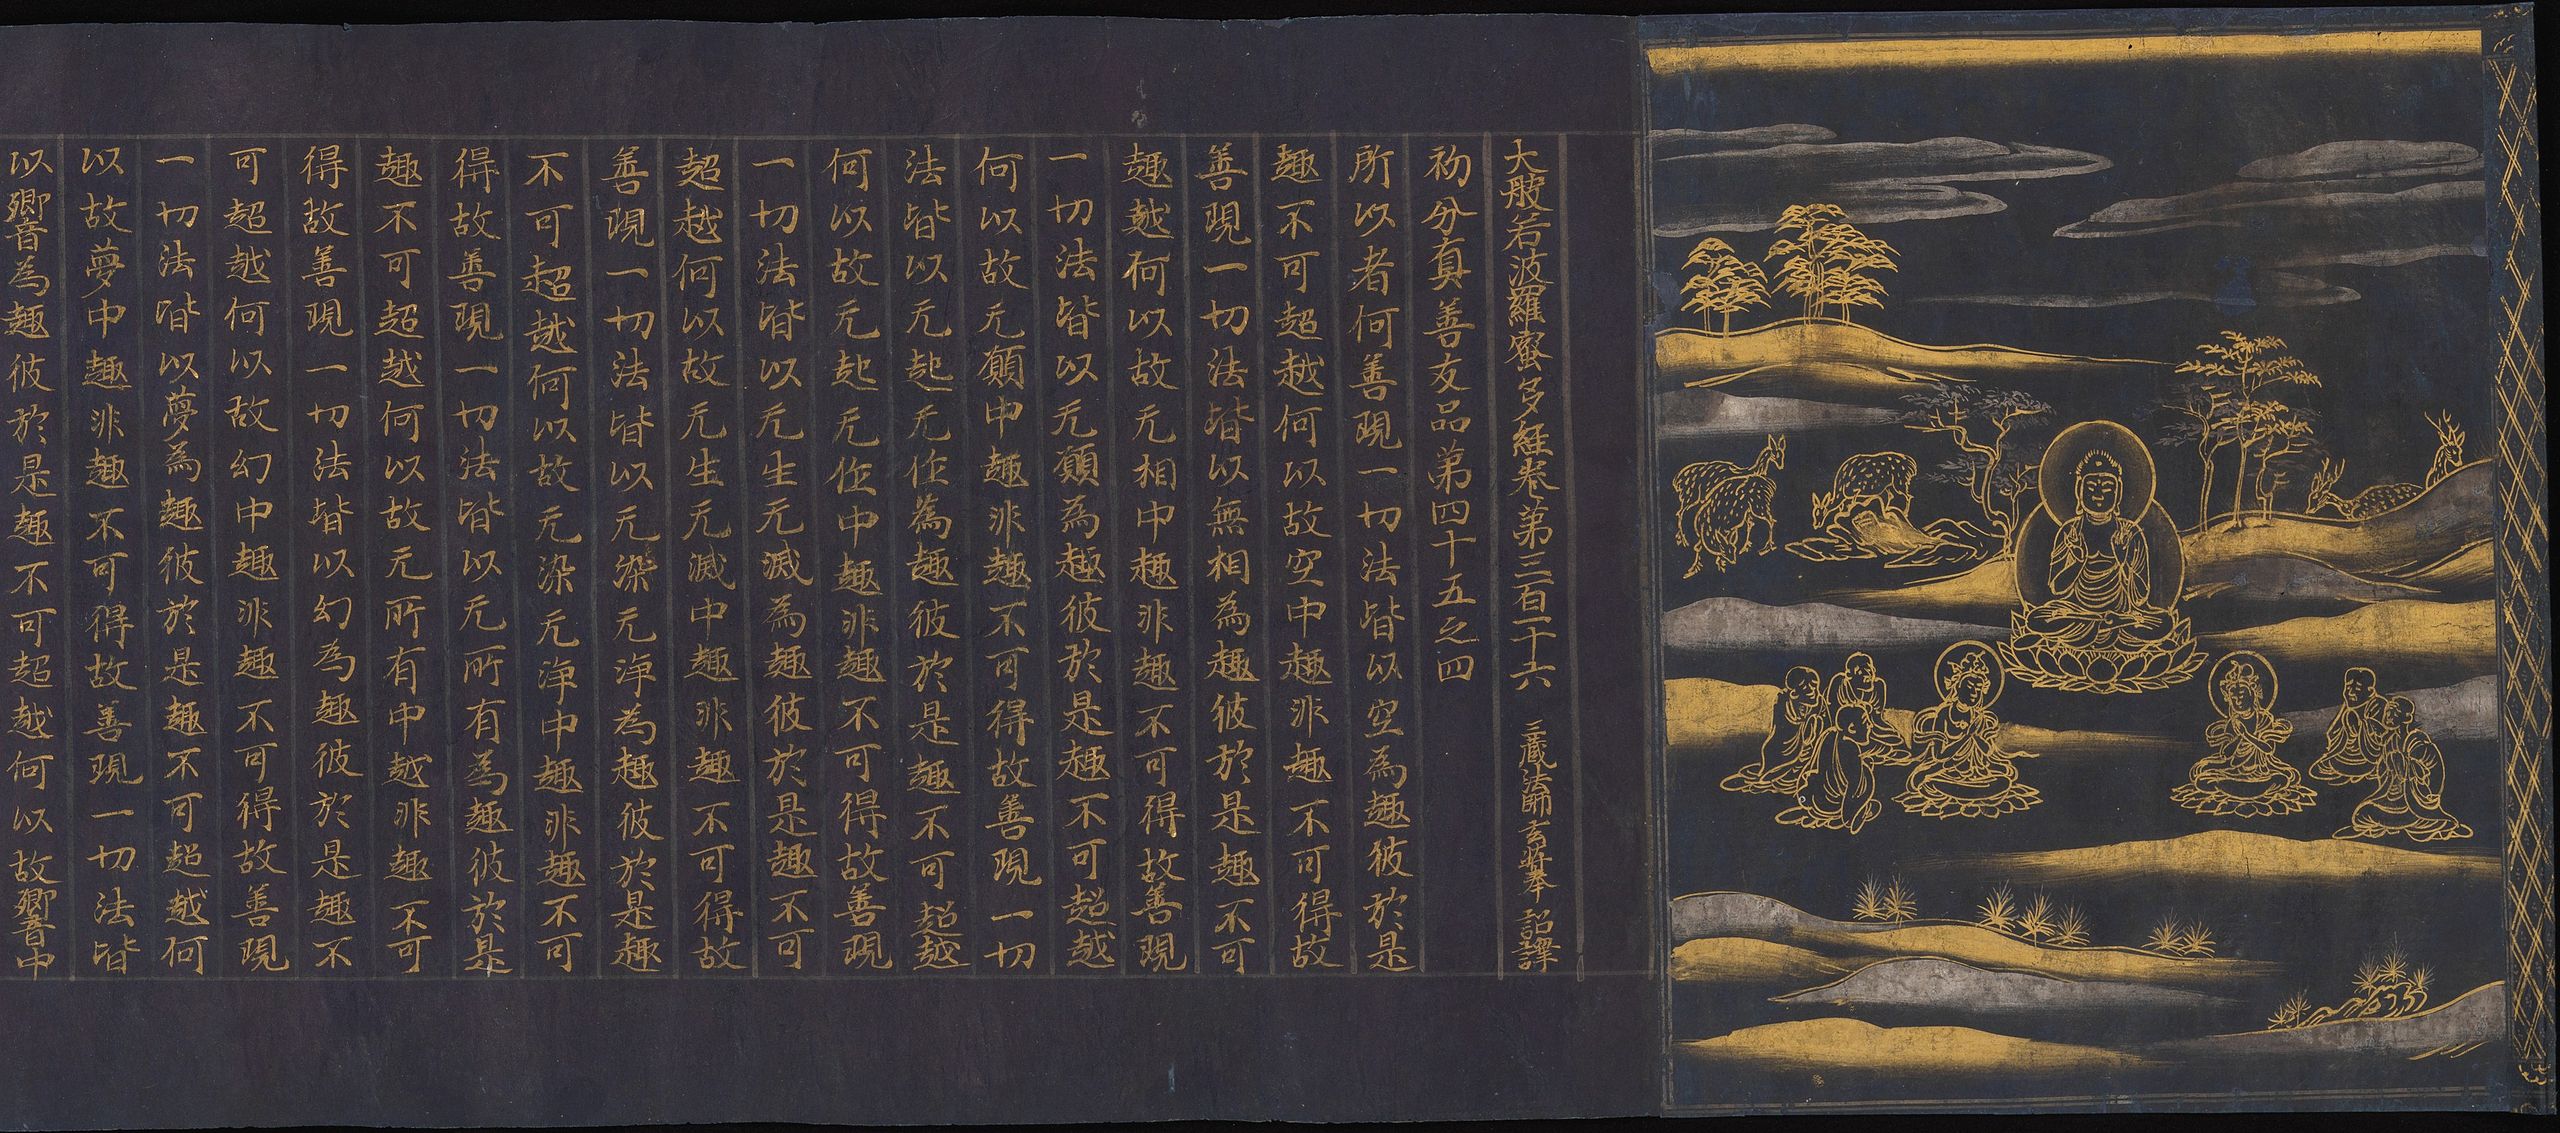 大般若波羅蜜多経巻第三百一十六 三蔵法師玄奘奉 詔譯
初分真善友品第四十五之四
所以者何善現一切法皆以空為趣彼於是
趣不可超越何以故空中趣非趣不可得故
善現一切法皆以無相為趣彼於是趣不可
趣越何以故无相中趣非趣不可得故善現
一切法皆以无願為趣彼於是趣不可超越
何以故无願中趣非趣不可得故善現一切
法皆以无起无作為趣彼於是趣不可超越
何以故无起无作中趣非趣不可得故善現
一切法皆以无生无滅為趣彼於是趣不可
超越何以故无生无滅中趣非趣不可得故
善現一切法皆以无染无浄為趣彼於是趣
不可超越何以故无染无浄中趣非趣不可
得故善現一切法皆以无所有為趣彼於是
趣不可超越何以故无所有中越非趣不可
得故善現一切法皆以幻為趣彼於是趣不
可超越何以故幻中趣非趣不可得故善現
一切法皆以夢為趣彼於是趣不可超越何
以故夢中趣非趣不可得故善現一切法皆
以響為趣彼於是趣不可超越何以故響中